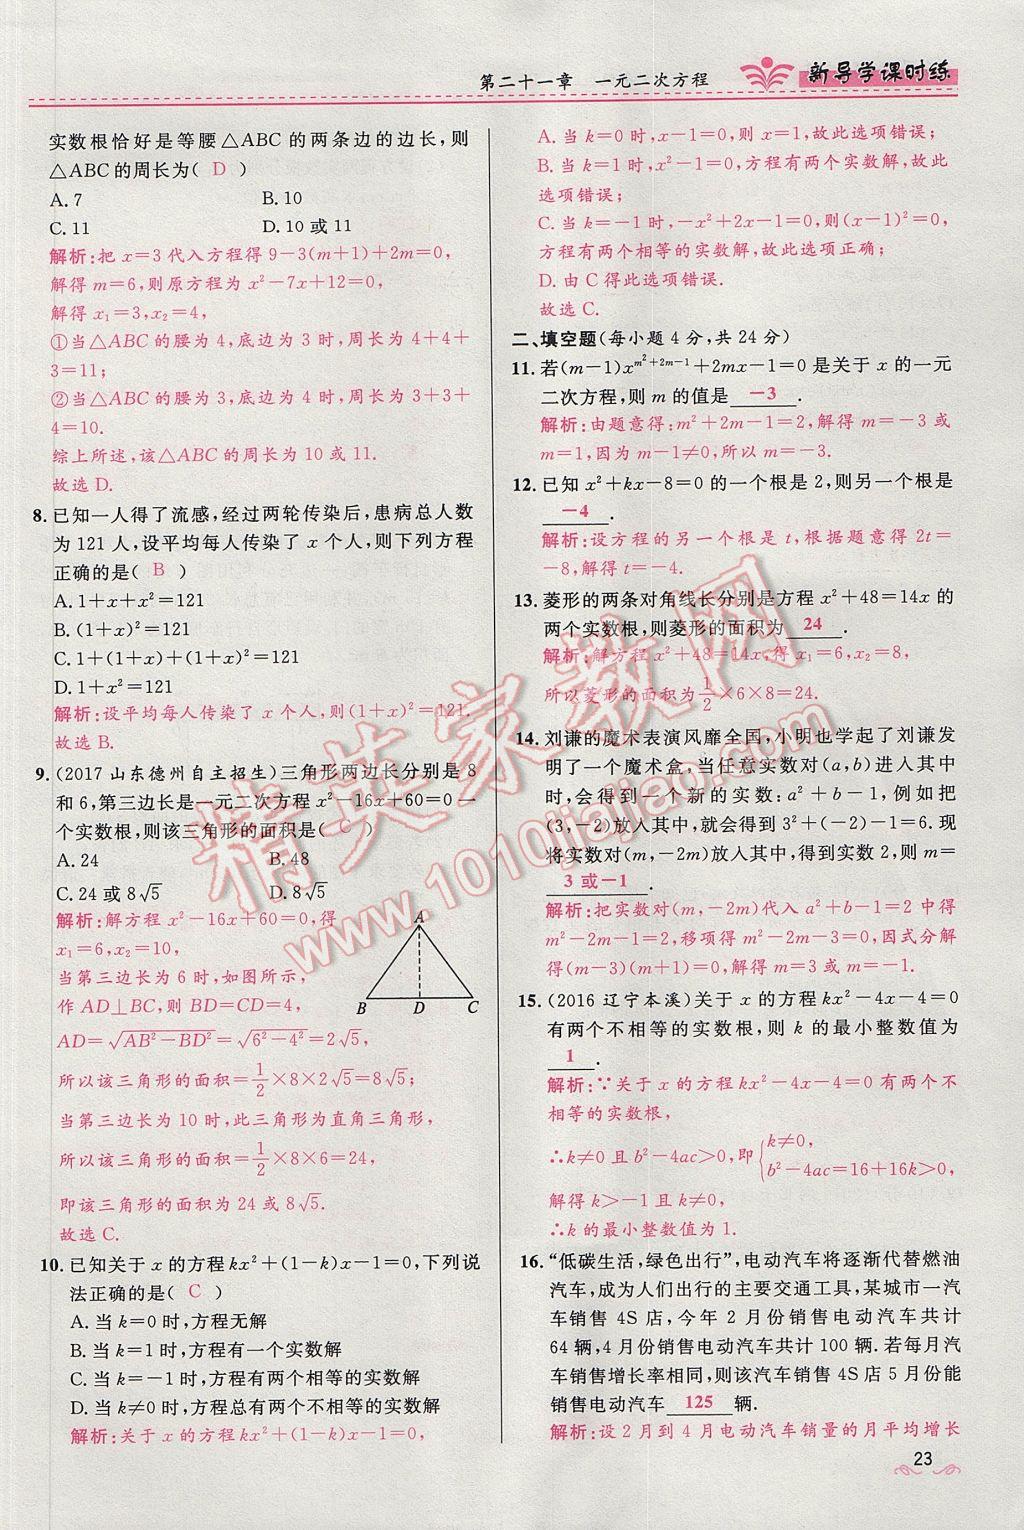 第二十一章　一元二次方程
新导学课时练
实数根恰好是等腰△ABC的两条边的边长,则
△ABC的周长为( D )
A. 7　B. 10
C. 11　D. 10或11
解析:把x=3代入方程得9-3(m+1)+2m=0,
解得m=6,则原方程为x²-7x+12=0,
解得x₁=3,x₂=4,
①当△ABC的腰为4,底边为3时,周长为4+4+
3=11;
②当△ABC的腰为3,底边为4时,周长为3+3+
4=10.
综上所述,该△ABC的周长为10或11.
故选D.
8. 已知一人得了流感,经过两轮传染后,患病总人数
为121人,设平均每人传染了x个人,则下列方程
正确的是( B )
A. 1+x+x²=121
B. (1+x)²=121
C. 1+(1+x)+(1+x)²=121
D. 1+x²=121
解析:设平均每人传染了x个人,则(1+x)²=121.
故选B.
9. (2017山东德州自主招生)三角形两边长分别是8
和6,第三边长是一元二次方程x²-16x+60=0一
个实数根,则该三角形的面积是( C )
A. 24　B. 48
C. 24或8√5　D. 8√5
解析:解方程x²-16x+60=0,得
x₁=6,x₂=10,
当第三边长为6时,如图所示,
作AD⊥BC,则BD=CD=4,
AD=√(AB²-BD²)=√(6²-4²)=2√5,
所以该三角形的面积=1/2×8×2√5=8√5;
当第三边长为10时,此三角形为直角三角形,
所以该三角形的面积=1/2×8×6=24,
即该三角形的面积为24或8√5.
故选C.
A
B D C
10. 已知关于x的方程kx²+(1-k)x-1=0,下列说
法正确的是( C )
A. 当k=0时,方程无解
B. 当k=1时,方程有一个实数解
C. 当k=-1时,方程有两个相等的实数解
D. 当k≠0时,方程总有两个不相等的实数解
解析:关于x的方程kx²+(1-k)x-1=0,
A. 当k=0时,x-1=0,则x=1,故此选项错误;
B. 当k=1时,x²-1=0,方程有两个实数解,故此
选项错误;
C. 当k=-1时,-x²+2x-1=0,则(x-1)²=0,
方程有两个相等的实数解,故此选项正确;
D. 由C得此选项错误.
故选C.
二、填空题(每小题4分,共24分)
11. 若(m-1)x^(m²+2m-1)+2mx-1=0是关于x的一元
二次方程,则m的值是 -3 .
解析:由题意得:m²+2m-1=2,解得m=-3或
m=1,因为m-1≠0,所以m=-3.
12. 已知x²+kx-8=0的一个根是2,则另一个根是
-4 .
解析:设方程的另一个根是t,根据题意得2t=
-8,解得t=-4.
13. 菱形的两条对角线长分别是方程x²+48=14x的
两个实数根,则菱形的面积为 24 .
解析:解方程x²+48=14x,得:x₁=6,x₂=8,
所以菱形的面积为1/2×6×8=24.
14. 刘谦的魔术表演风靡全国,小明也学起了刘谦发
明了一个魔术盒,当任意实数对(a,b)进入其中
时,会得到一个新的实数:a²+b-1,例如把
(3,-2)放入其中,就会得到3²+(-2)-1=6.现
将实数对(m,-2m)放入其中,得到实数2,则m=
3或-1 .
解析:把实数对(m,-2m)代入a²+b-1=2中得
m²-2m-1=2,移项得m²-2m-3=0,因式分解
得(m-3)(m+1)=0,解得m=3或-1.
15. (2016辽宁本溪)关于x的方程kx²-4x-4=0
有两个不相等的实数根,则k的最小整数值为
1 .
解析:∵关于x的方程kx²-4x-4=0有两个不
相等的实数根,
∴k≠0且b²-4ac>0,即{k≠0,
b²-4ac=16+16k>0,
解得k>-1且k≠0,
∴k的最小整数值为1.
16. “低碳生活,绿色出行”,电动汽车将逐渐代替燃油
汽车,成为人们出行的主要交通工具,某城市一汽
车销售4S店,今年2月份销售电动汽车共计
64辆,4月份销售电动汽车共计100辆.若每月汽
车销售增长率相同,则该汽车销售4S店5月份能
销售电动汽车 125 辆.
解析:设2月到4月电动汽车销量的月平均增长
23
精英家教网
www.1010jiajiao.com